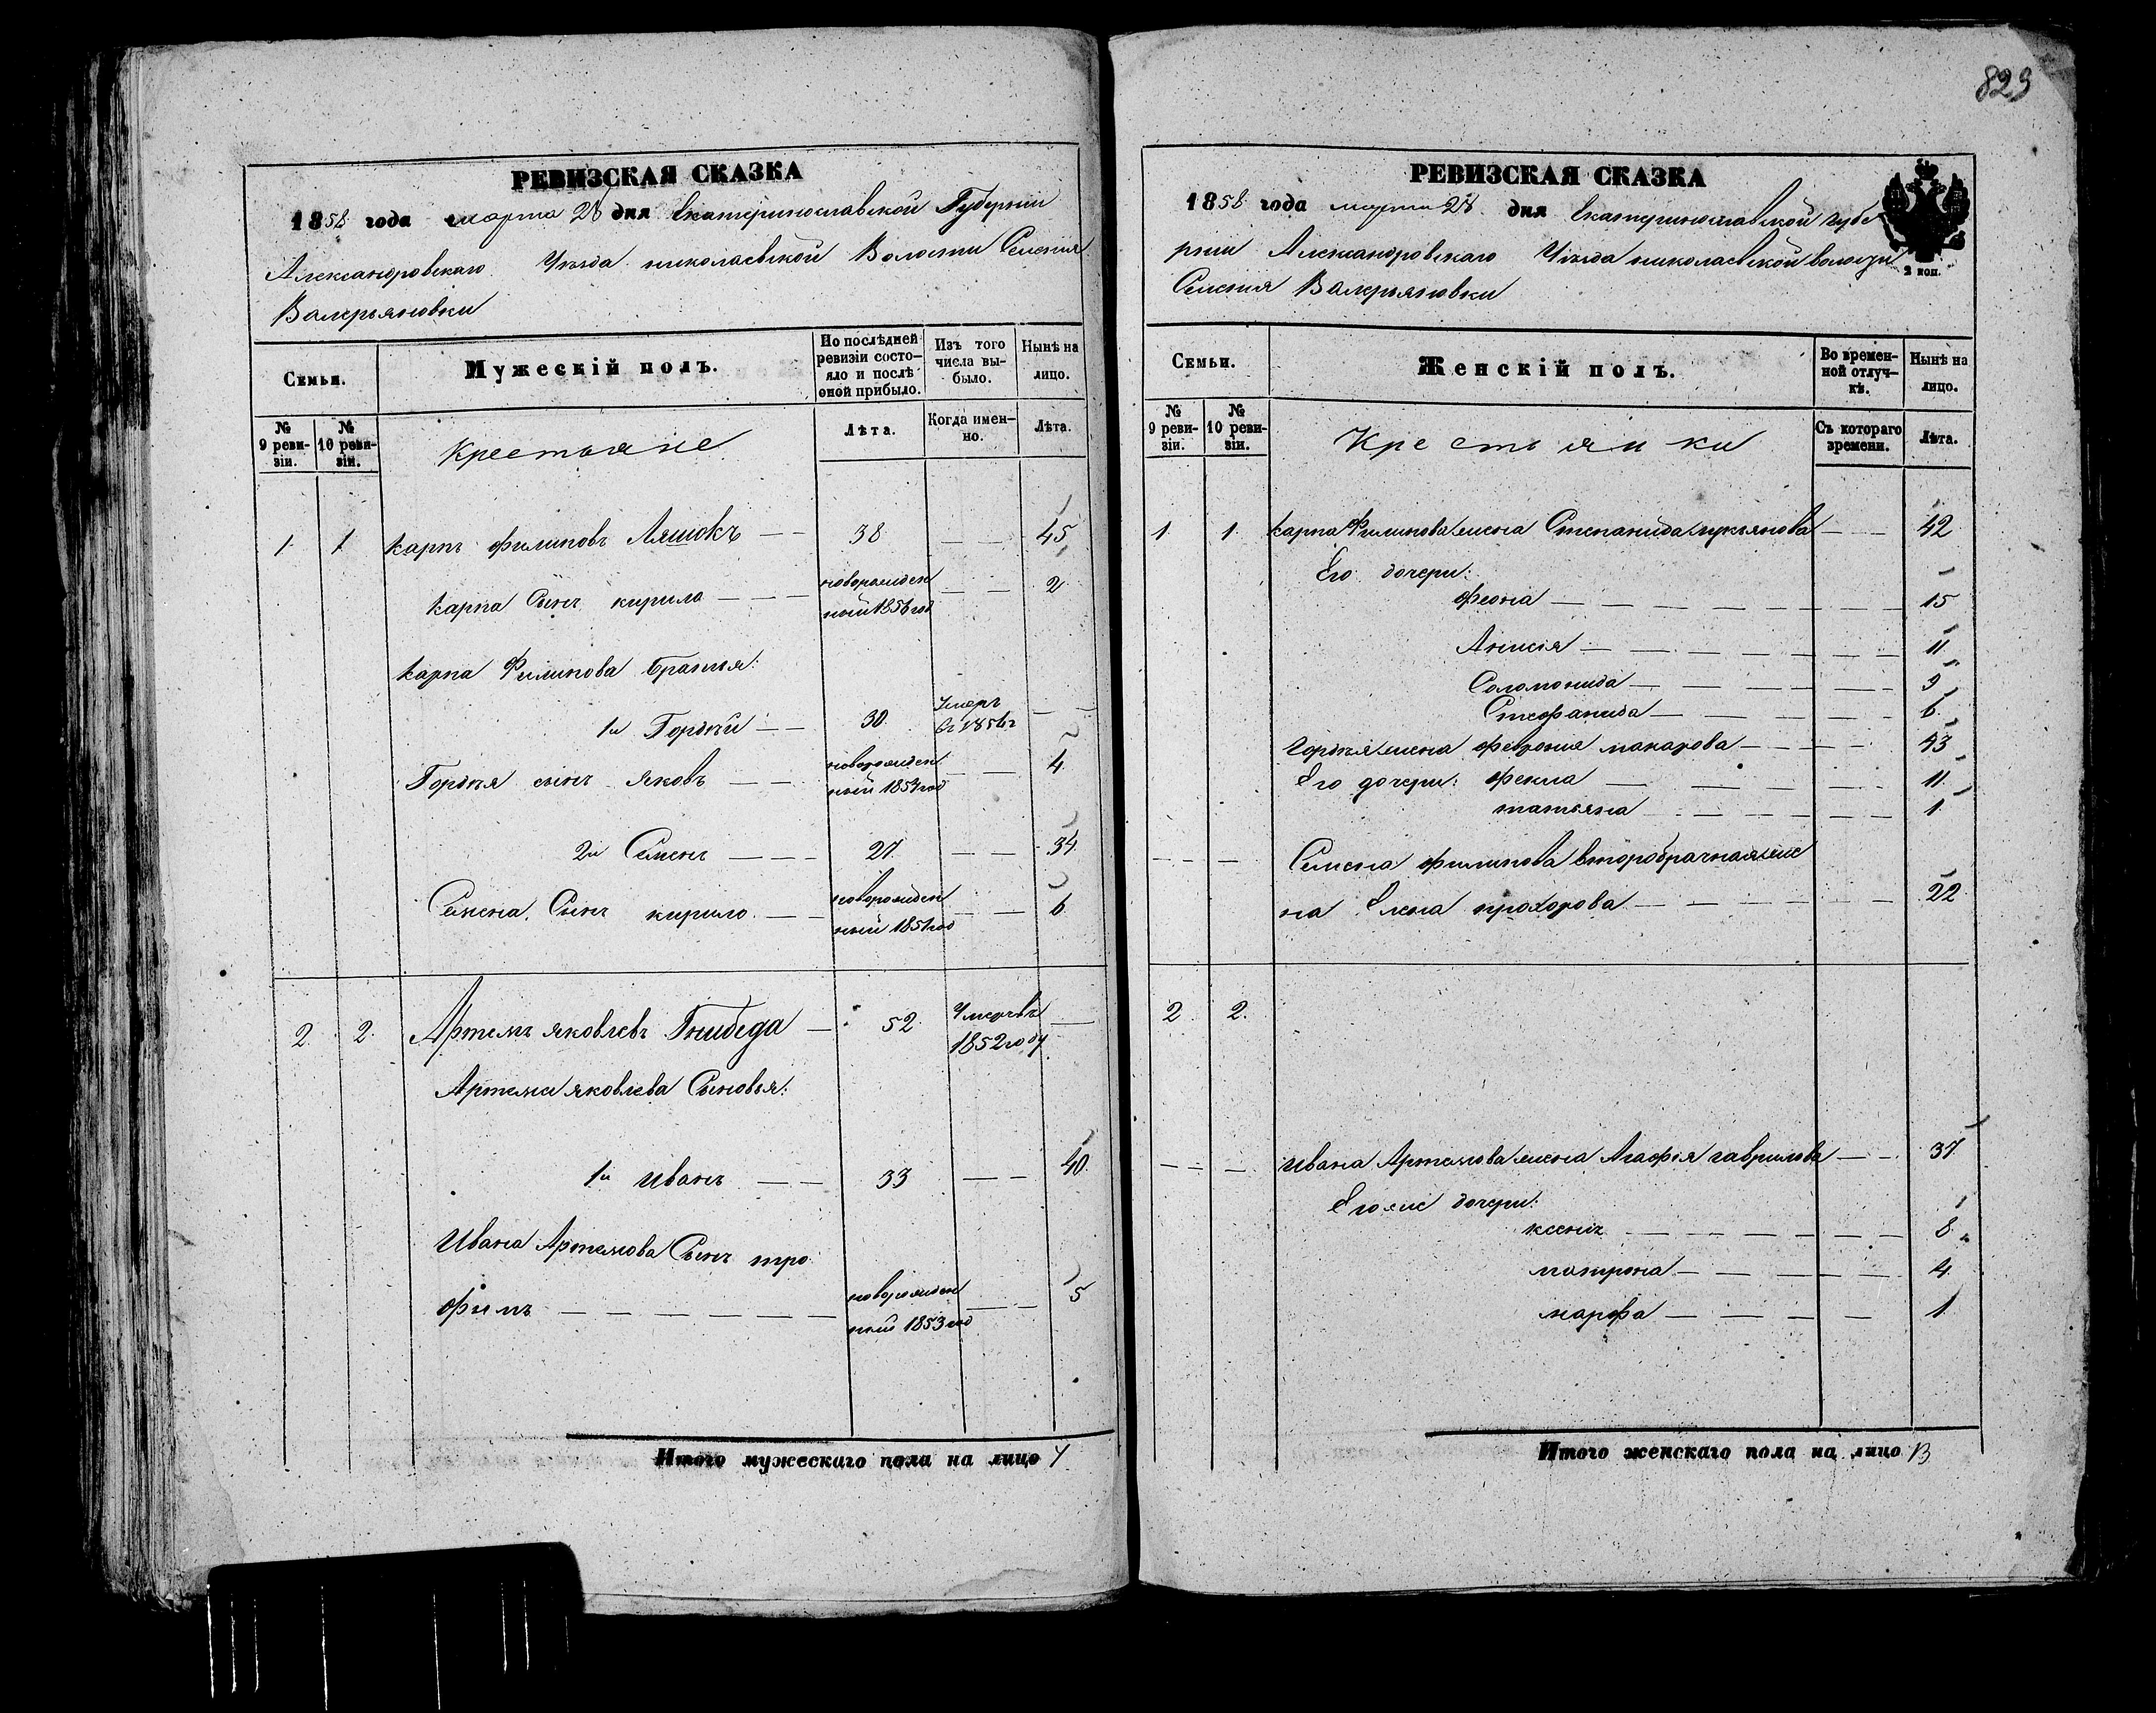 РЕВИЗСКАЯ СКАЗКА
1858 года марта 28 дня Екатеринославской Губерніи
Александровскаго Уѣзда николаевской Волости Селенія
Валерьяновки
Семьи.
Мужескій полъ.
По послѣдней ревизіи состояло и послѣ оной прибыло.
Изъ того числа выбыло.
Нынѣ на лицо.
№ 9 ревизіи.
№ 10 ревизіи.
Крестьяне
Лѣта.
Когда именно.
Лѣта.
1 1 карпъ филиповъ Ляшокъ — — 38 — — 45
карпа Сынъ кирила — — — новорожден — — 2
ный 1856 год
карпа Филипова братья:
1й Гордѣй — — 30 Умеръ — —
въ 1856 г
Гордѣя сынъ яковъ — — новорожден — — 4
ный 1854 год
2й Семенъ — — — 27. — — 34
Семена Сынъ кирило — — новорожден — — 6
ный 1851 год
2. 2. Артемъ яковлевъ Гнибеда — 52 Умеръ въ —
1852 году
Артема яковлева Сыновья:
1й иванъ — — 33 — — 40.
Ивана Артемова Сынъ тро
фимъ — — — — — — новорожден — — 5
ный 1853 год
Итого мужескаго пола на лицо 7
823
РЕВИЗСКАЯ СКАЗКА
1858 года марта 28 дня Екатеринославской губе
рніи Александровскаго Уѣзда николаевской волости
Селенія Валерьяновки
2 коп.
Семьи.
Женскій полъ.
Во временной отлучкѣ.
Нынѣ на лицо.
№ 9 ревизіи.
№ 10 ревизіи.
Крестьянки
Съ котораго времени.
Лѣта.
1. 1. карпа Филипова жена Степанида лукьянова — — 42
Его дочери:
феона — — — — — — 15
Анисія — — — — — — 11
Соломонида — — — — — 9
Стефанида — — — — — 6
гордѣя жена феврония макарова — — — — 43
Его дочери: фекла — — — — — 11.
татьяна — — — — — 1
— — — Семена филипова второбрачная же
на Елена прохорова — — — — — 22
2 2.
— — — ивана Артемова жена Агафія гаврилова — — 37
Его же дочери:
ксенія — — — — — — 8
матрона — — — — — 4.
марфа — — — — — 1
Итого женскаго пола на лицо 13